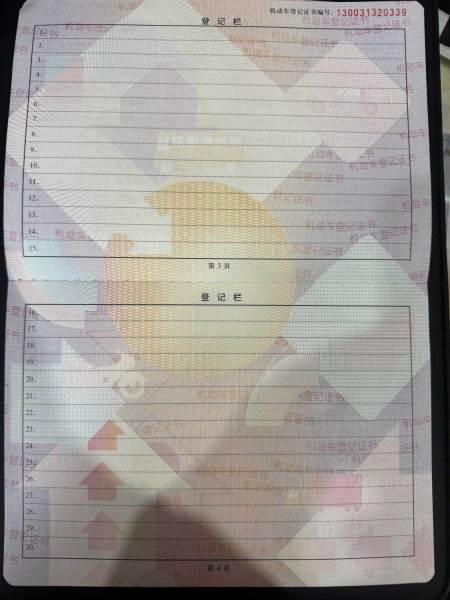 机动车登记证书编号：130031320339
登记栏
1.
2.
3.
4.
5.
6.
7.
8.
9.
10.
11.
12.
13.
14.
15.
第 3 页
登记栏
16.
17.
18.
19.
20.
21.
22.
23.
24.
25.
26.
27.
28.
29.
30.
第 4 页